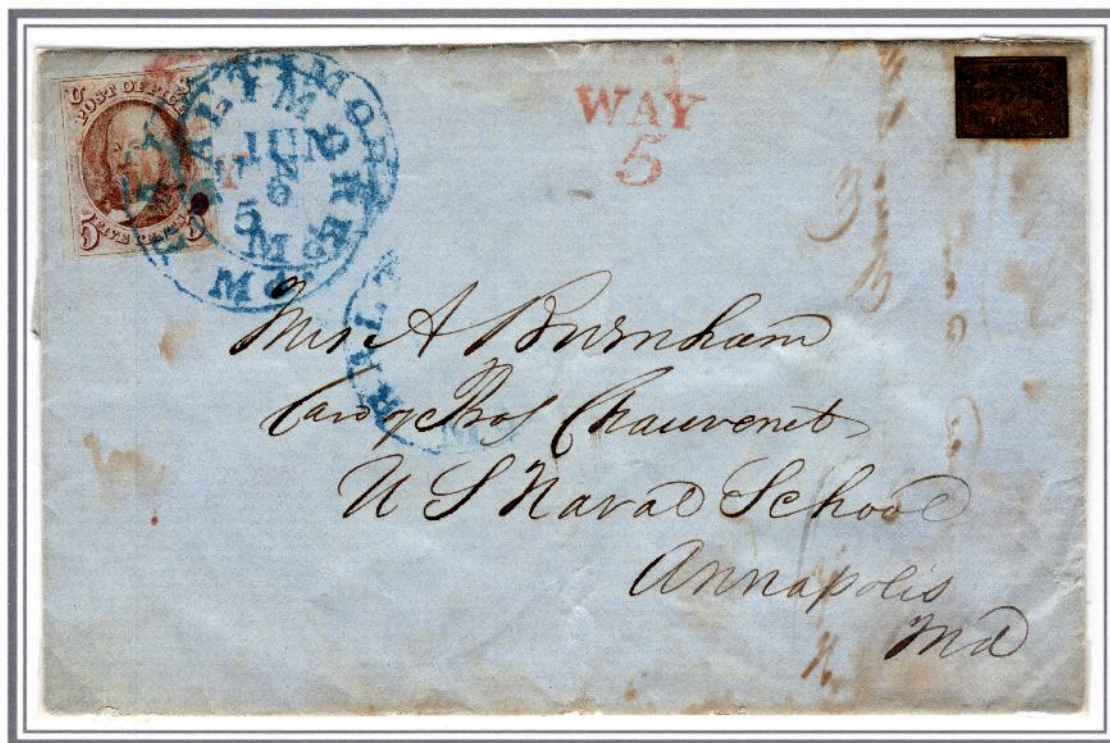 U S
POST OFFICE
5 FIVE CENTS 5
BALTIMORE
JUN
6
5
PM
WAY
5
Mrs A Burnham
Care of Prof Chauvenet
U S Naval School
Annapolis
Md